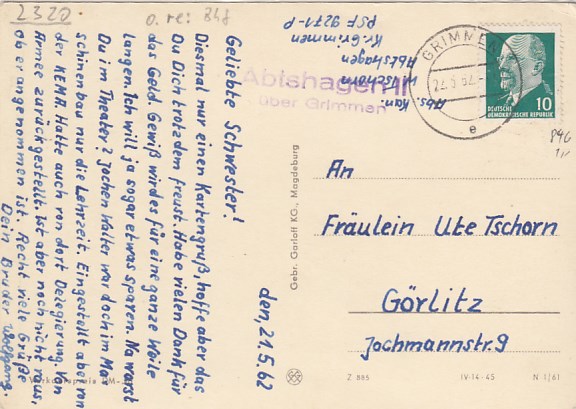 2320
o. re: 848
Geliebte Schwester!
Diesmal nur einen Kartengruß, hoffe aber das
Du Dich trotzdem freust. Habe vielen Dank für
das Geld. Gewiß wird es für eine ganze Weile
langen. Ich will ja sogar etwas sparen. Na warst
Du im Theater? Jochen Walter war doch im Ma
schinenbau nur die Lehrzeit. Eingestellt aber von
der KEMA. Hatte auch von dort Delegierung. Von
Armee zurückgestellt. Ist aber noch nicht raus,
ob er angenommen ist. Recht viele Grüße
Dein Bruder Wolfgang.
den, 21.5.62
Abs. Kan.
W. Tschorn
Abtshagen
Kr. Grimmen
PSF 9271-P
Abtshagen II
über Grimmen
GRIMMEN
e
10
DEUTSCHE
DEMOKRATISCHE REPUBLIK
896
1,-
An
Fräulein Ute Tschorn
Görlitz
Jochmannstr. 9
Gebr. Garloff KG., Magdeburg
Z 885
IV-14-45
N 1/61